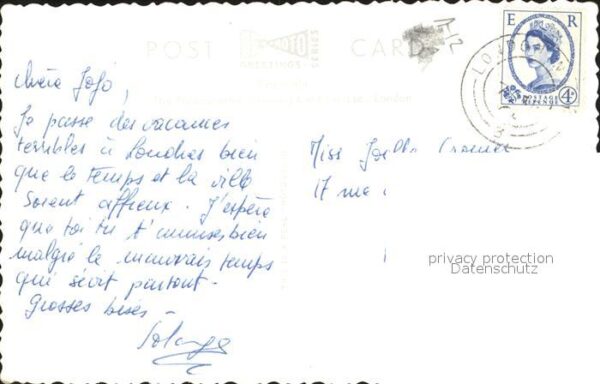 POST CARD
GREETINGS
E R
POSTAGE
REVENUE
4D
LONDON
Chère JoJo,
Je passe des vacances
terribles à Londres bien
que le temps et la ville
soient affreux. J'espère
que toi tu t'amuses bien
malgré le mauvais temps
qui sévit partout.
Grosses bises -
Solange
Miss Joëlle
17 rue
privacy protection
Datenschutz